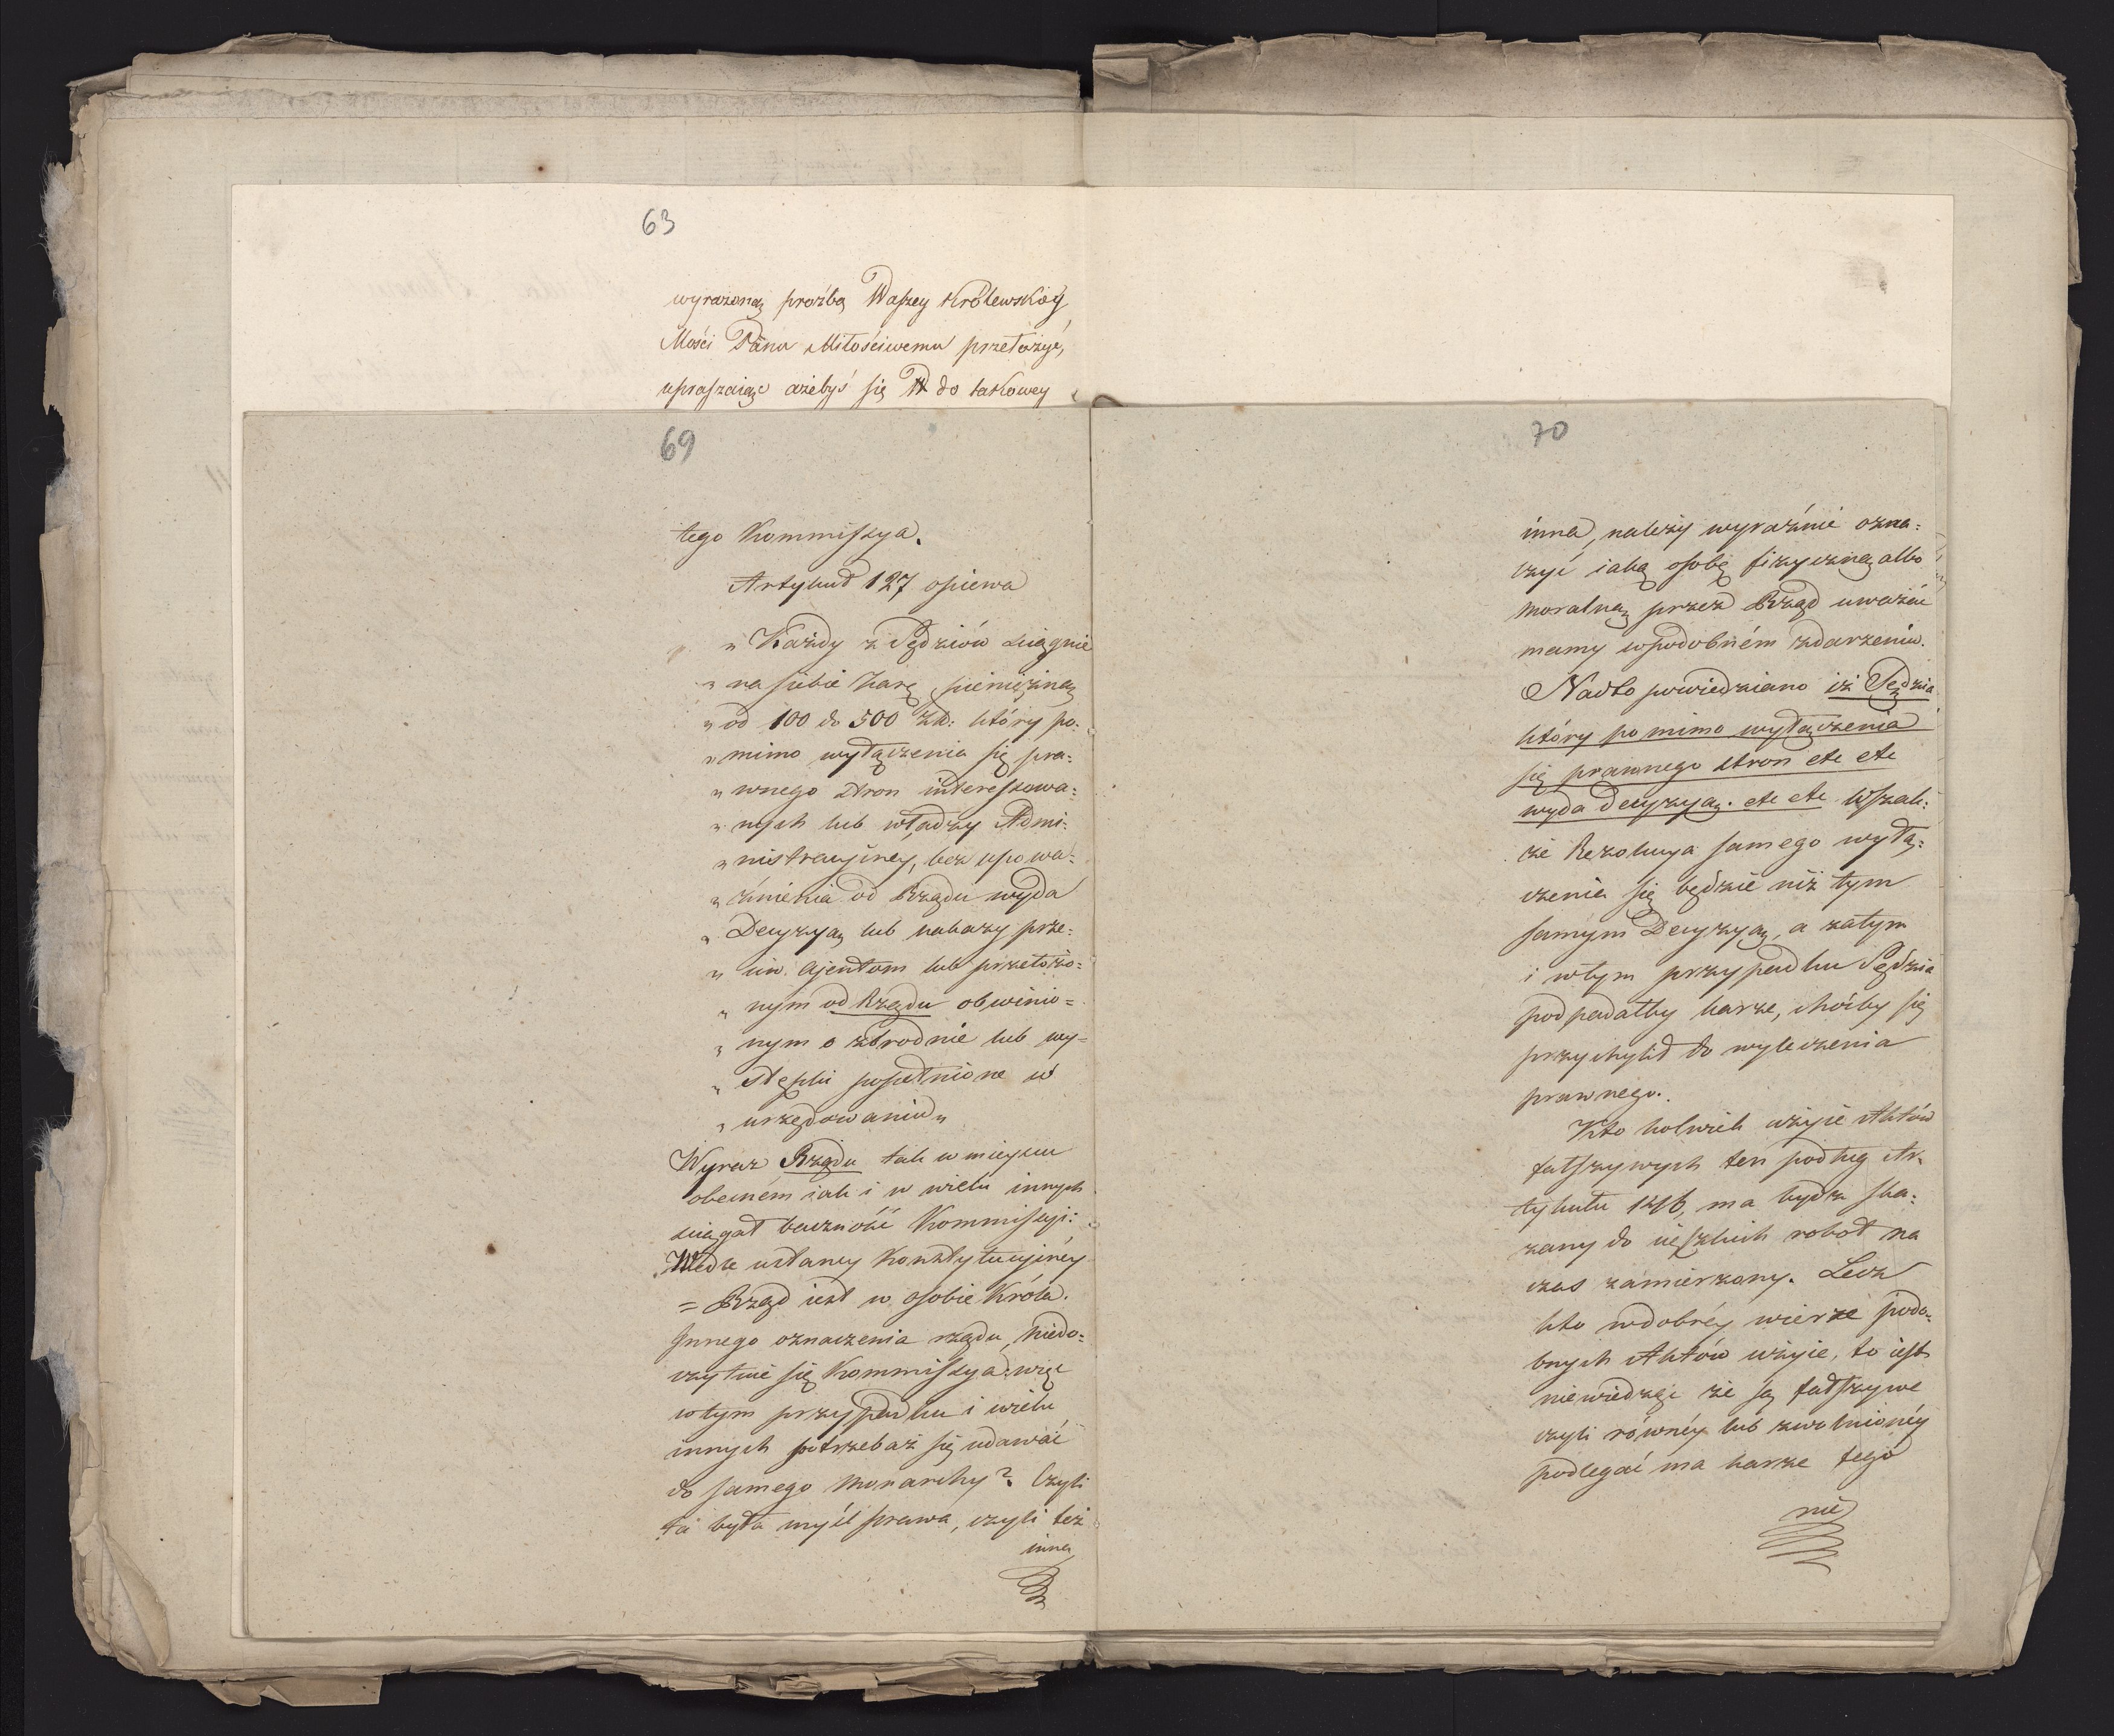 63
wyrażoną proźbę Waszey Królewskiey
Mości Pana Miłościwemu przełożyć,
upraszaiąc ażebyś się N do takowey
69
tego Kommissya.
Artykuł 127 opiewa
„ Każdy z Sędziów ściągnie
„ na siebie karę pieniężną
„ od 100 do 500 Zł: który po:
„ mimo wyłączenia się pra:
„ wnego stron interessowa:
„ nych lub władzy Admi:
„ nistracyiney, bez upowa:
„ żnienia od Rządu wyda
„ Decyzyą lub nakazy prze:
„ ciw. Ajentom lub przełożo=
„ nym od Rządu obwinio=
„ nym o zbrodnie lub wy=
„ stępki popełnione w
„ urzędowaniu„
Wyraz Rządu tak w mieyscu
obecném iak i w wielu innych
ściągał baczność Kommissyi:
Wedle ustawy Konstytucyinéy
= Rząd iest w osobie Króla.
Innego oznaczenia rządu, niedo:
czytuie się Kommissya: więc
wtym przypadku i wielu
innych potrzebaż się udawać
do samego Monarchy? Czyli
ta była myśl prawa, czyli też
inna
70
inna, należy wyraźnie ozna:
czyć iaką osobę fizyczną albo
moralną przez Rząd uważać
mamy wpodobném zdarzeniu.
Nadto powiedziano iż Sędzia
który po mimo wyłączenia
się prawnego stron etc etc
wyda Decyzyą. etc etc Wszak:
że Rezolucya samego wyłą:
czenia się będzie niż tym
samym Decyzyą, a zatym
i wtym przypadku Sędzia
podpadałby karze, choćby się
przychylił do wyłączenia
prawnego.
Kto kolwiek użyie Aktów
fałszywych ten podług Ar.
tykułu 146, ma bydź ska:
zany do ciężkich robot na
czas zamierzony. Lecz
kto wdobréy wierze podo:
bnych Aktów użyie, to iest
niewiedząc że są fałszywe
czyli równéy lub zwolnionéy
podlegać ma karze tego
nie